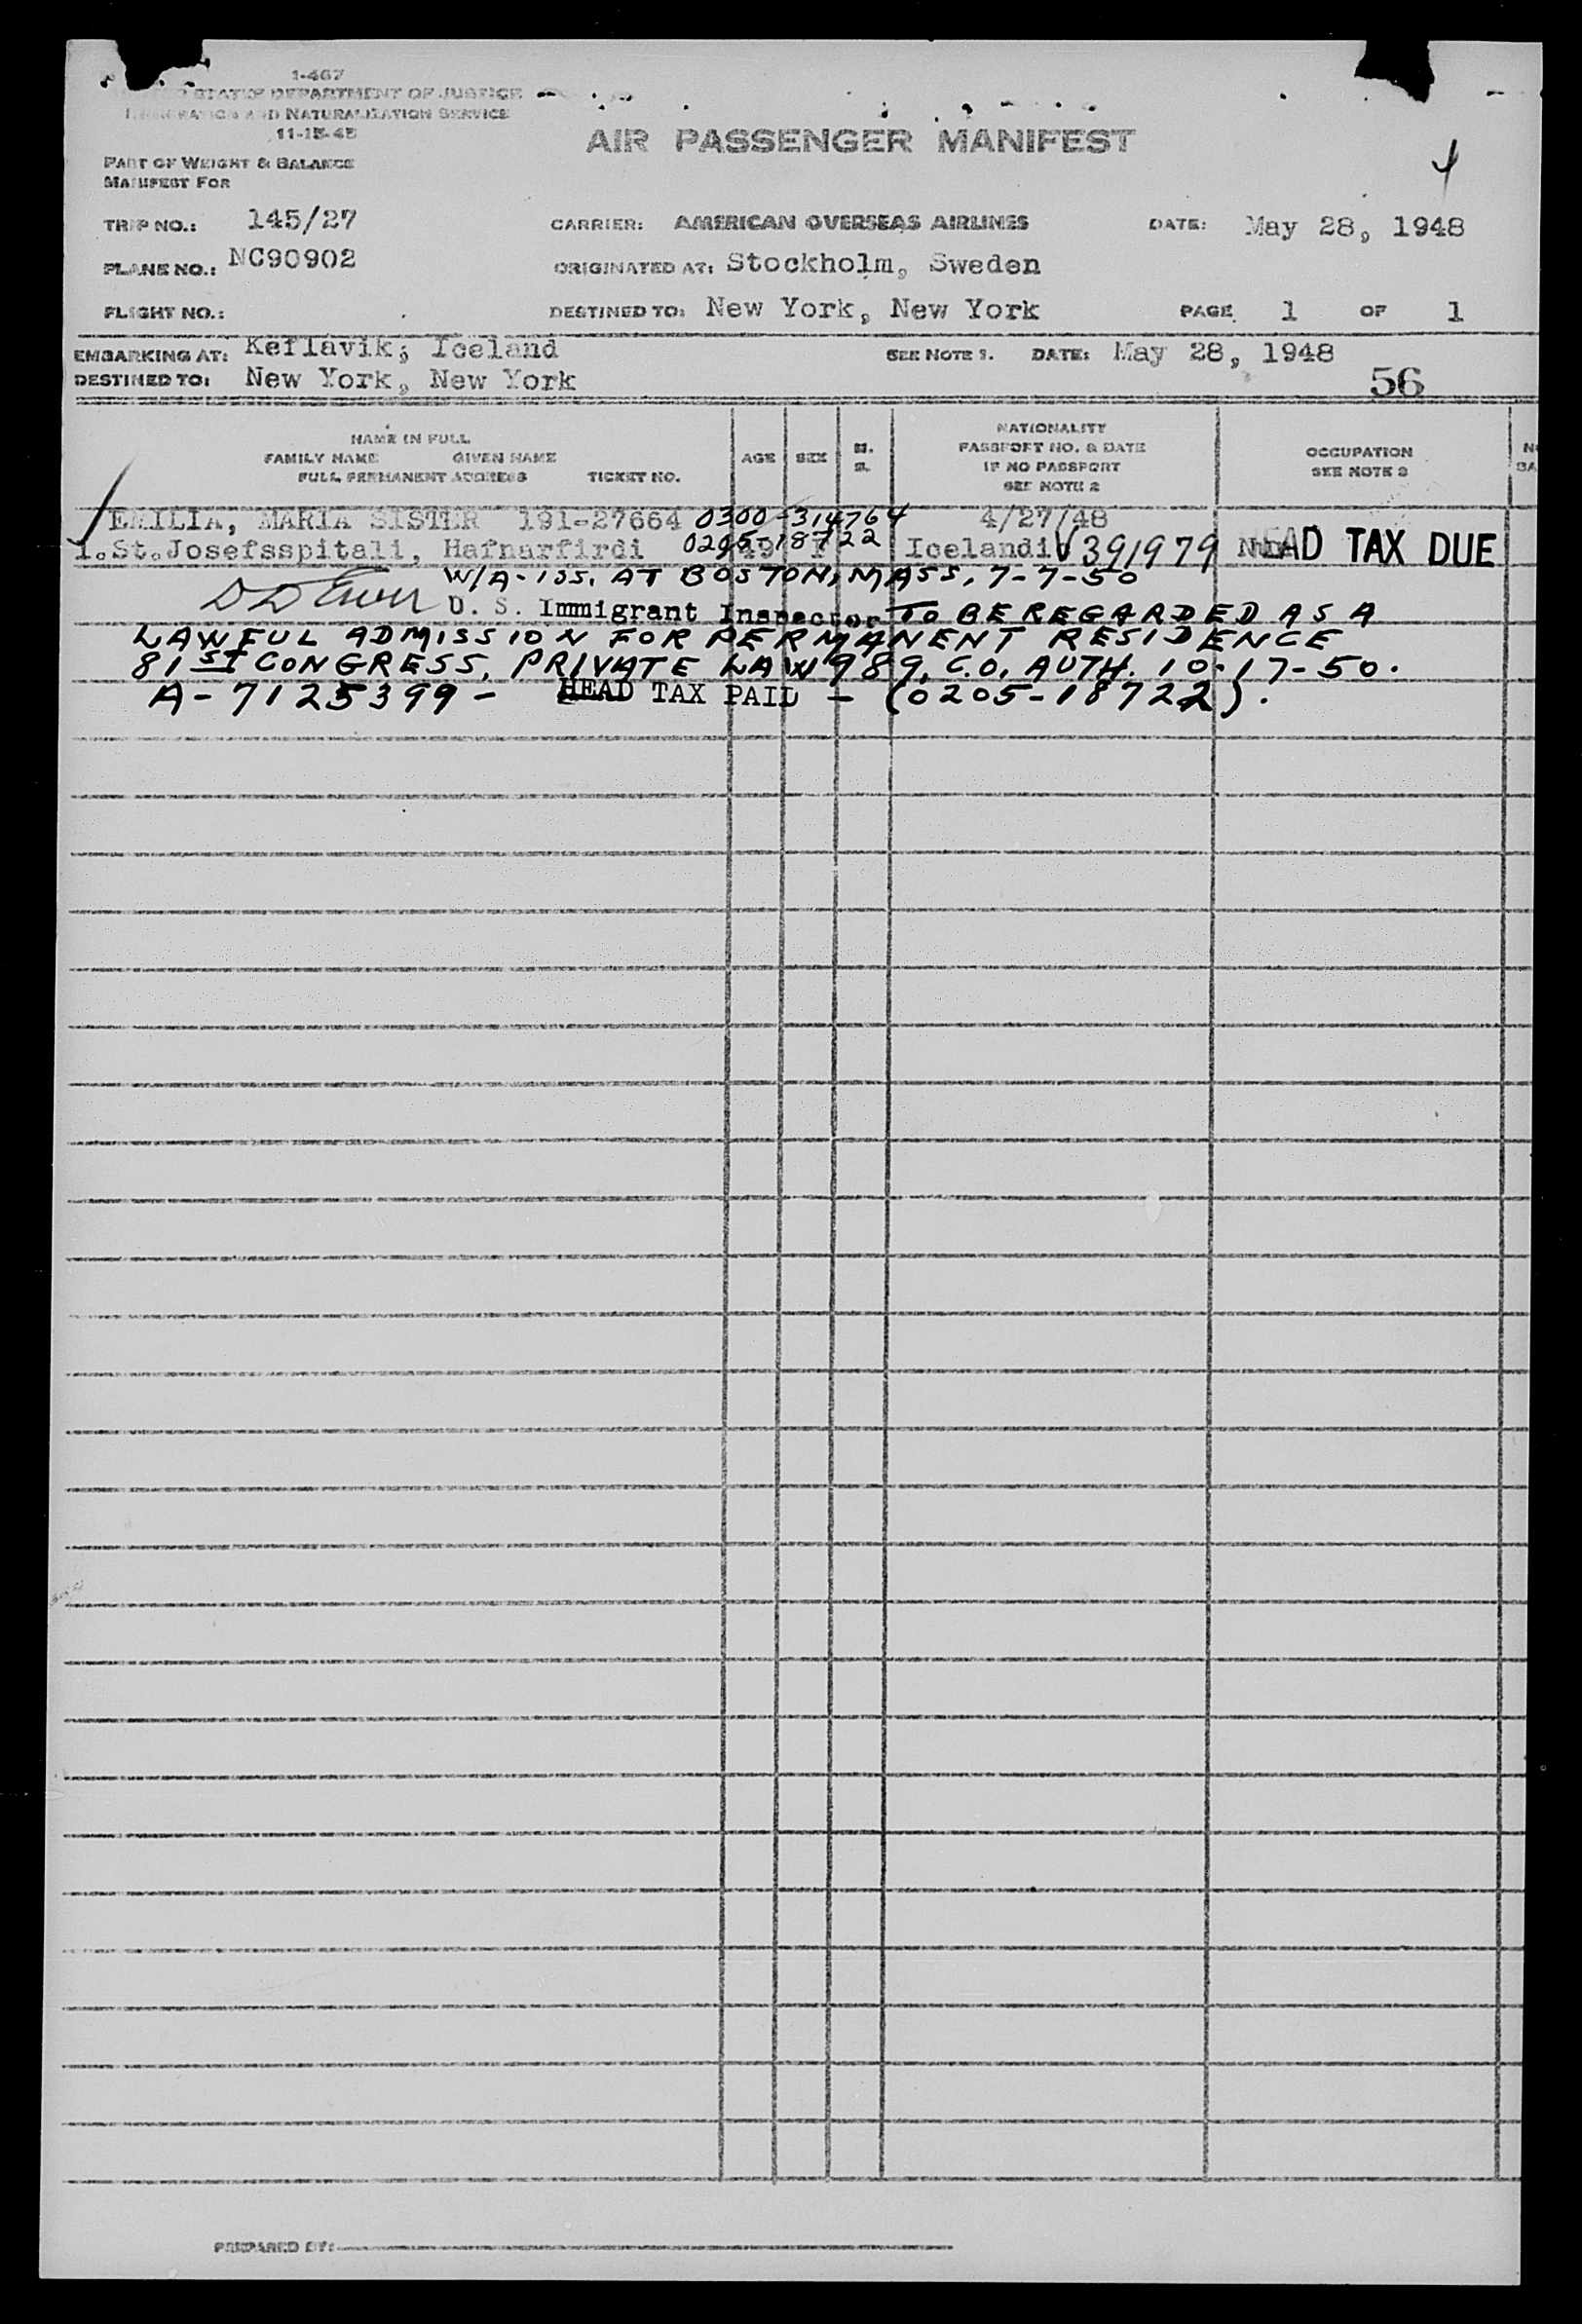 1-467
STATES DEPARTMENT OF JUSTICE
IMMIGRATION AND NATURALIZATION SERVICE
11-15-45
AIR PASSENGER MANIFEST
4
PART OF WEIGHT & BALANCE
MANIFEST FOR
TRIP NO.: 145/27 CARRIER: AMERICAN OVERSEAS AIRLINES DATE: May 28, 1948
PLANE NO.: NC90902 ORIGINATED AT: Stockholm, Sweden
FLIGHT NO.: DESTINED TO: New York, New York PAGE 1 OF 1
EMBARKING AT: Keflavik, Iceland SEE NOTE 1. DATE: May 28, 1948
DESTINED TO: New York, New York 56
NAME IN FULL
FAMILY NAME GIVEN NAME
FULL PERMANENT ADDRESS TICKET NO.
AGE SEX M. S.
NATIONALITY
PASSPORT NO. & DATE
IF NO PASSPORT
SEE NOTE 2
OCCUPATION
SEE NOTE 3
EMILIA, MARIA SISTER 191-27664 0300-314764 4/27/48
1.St.Josefsspitali, Hafnarfirdi 0205-18722 49 F Icelandi V391979 HEAD TAX DUE
W/A-ISS. AT BOSTON, MASS, 7-7-50
U. S. Immigrant Inspector TO BE REGARDED AS A
LAWFUL ADMISSION FOR PERMANENT RESIDENCE
81ST CONGRESS, PRIVATE LAW 989, C.O. AUTH. 10-17-50.
A-7125399- HEAD TAX PAID - (0205-18722).
PREPARED BY: